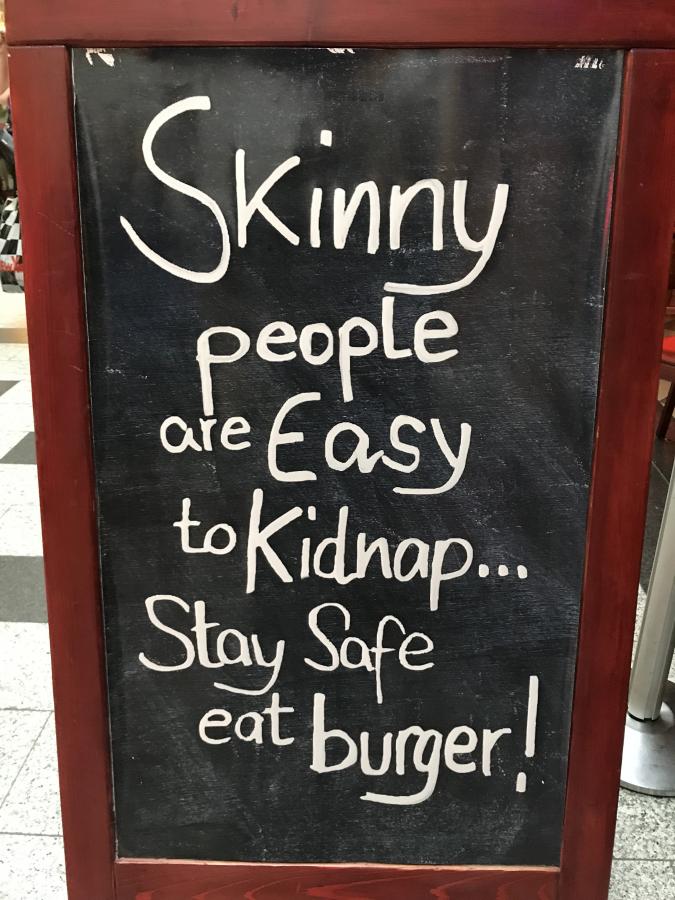 Skinny
people
are Easy
to Kidnap...
Stay Safe
eat burger!